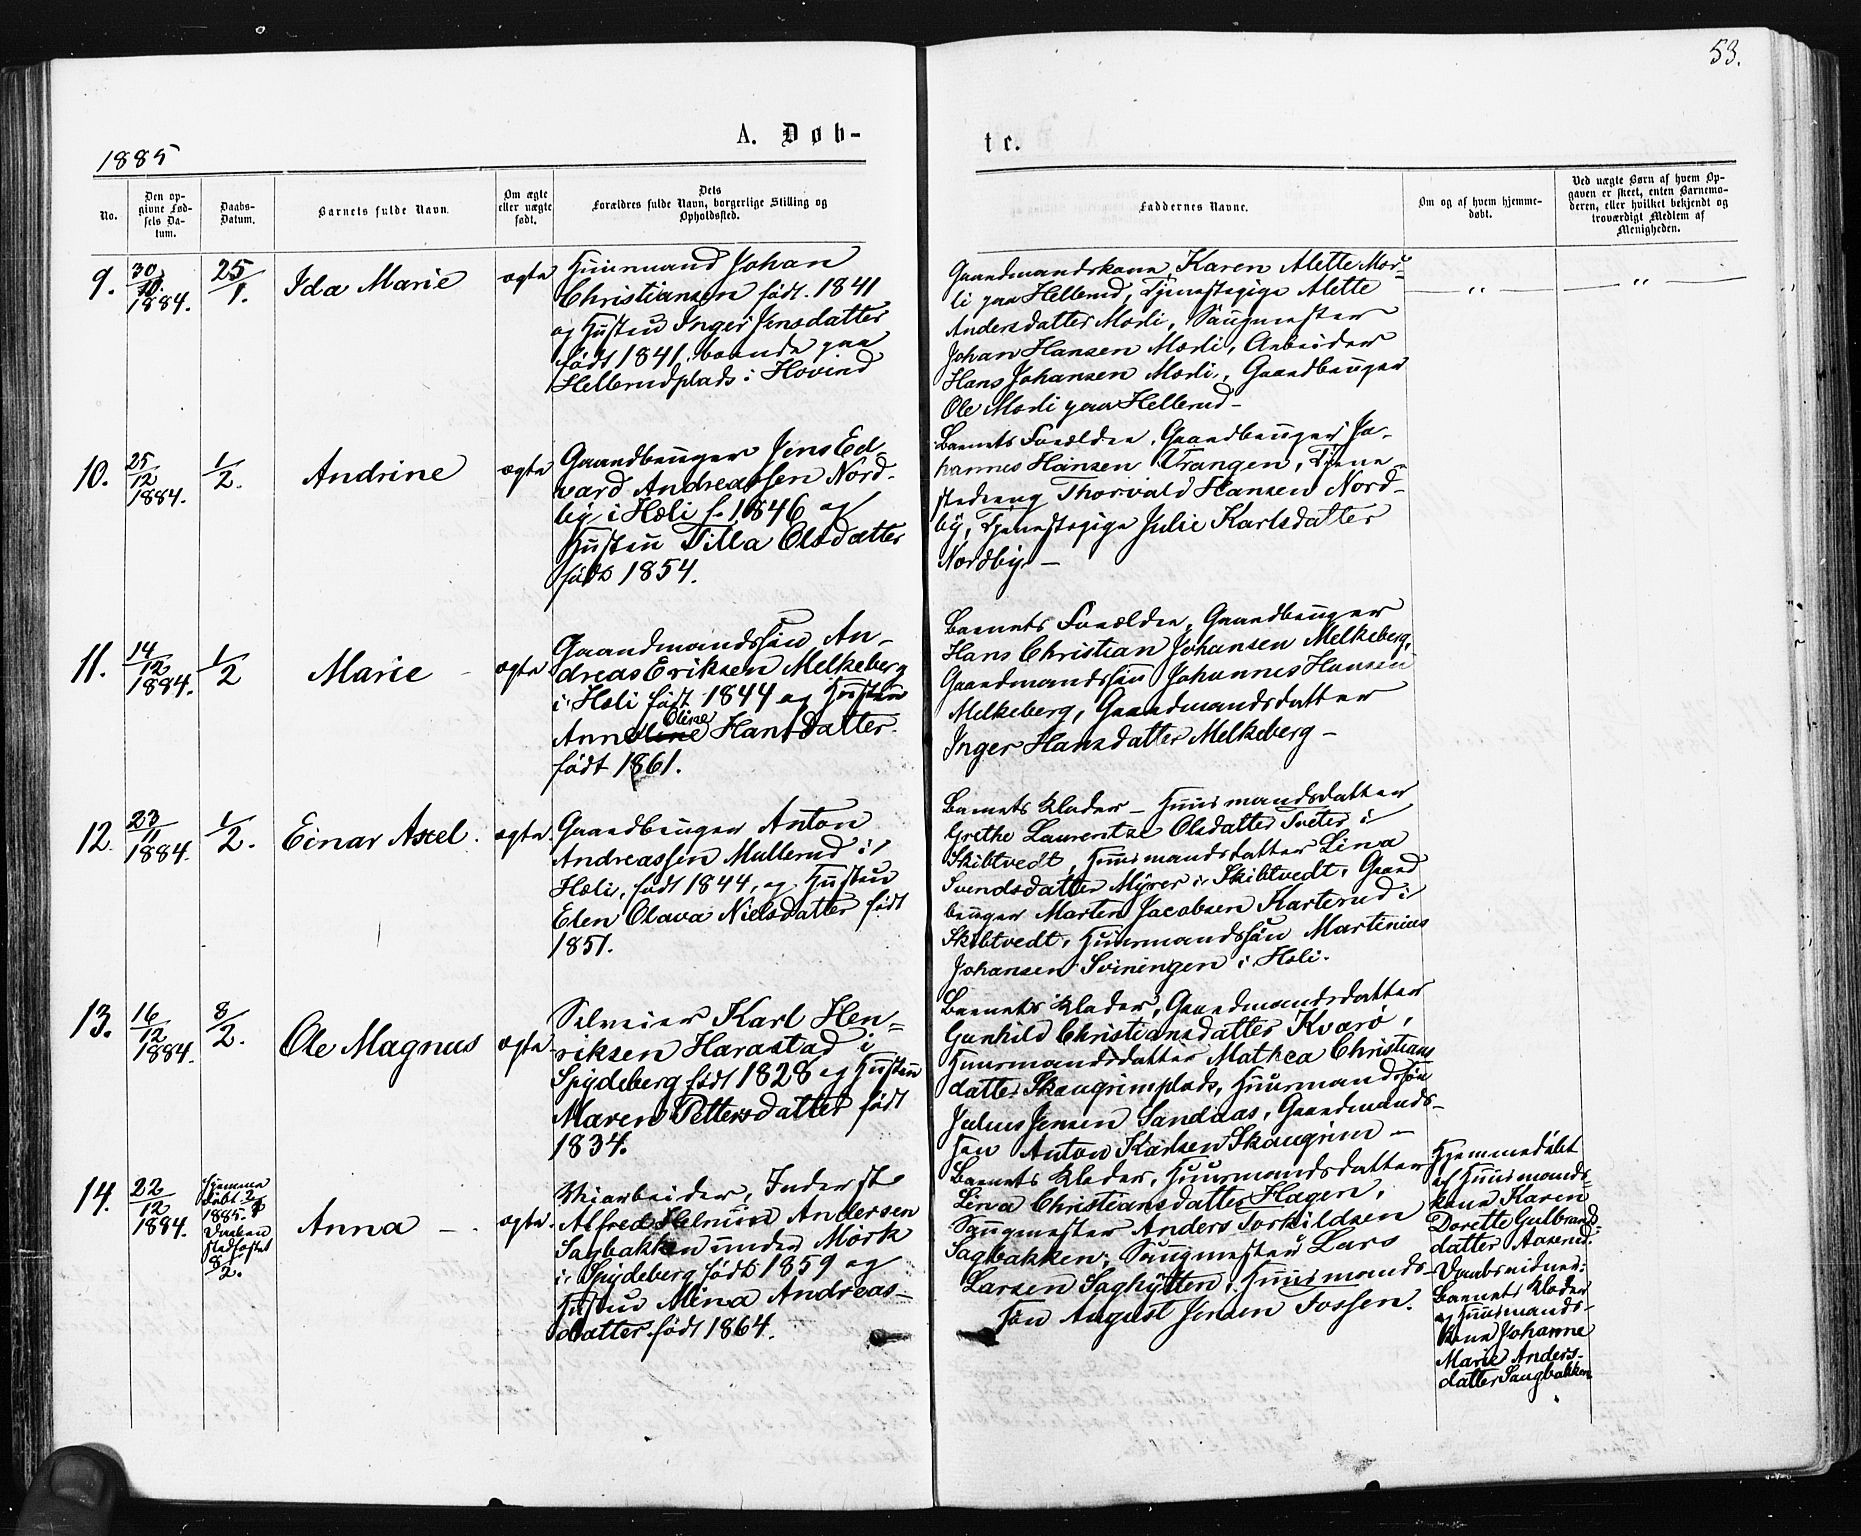 53.
1885
A. Døb-
te.
No.
Den op-
givne Fød-
sels Da-
tum.
Daabs-
Datum.
Barnets fulde Navn.
Om ægte
eller uægte
født.
Dets
Forældres fulde Navn, borgerlige Stilling og
Opholdssted.
Faddernes Navne.
Om og af hvem hjemme-
døbt.
Ved uægte Børn af hvem Op-
gaven er skeet, enten Barnemo-
deren, eller hvilket bekjendt og
troværdigt Medlem af
Menigheden.
9.
30/10
1884.
25/1.
Ida Marie
ægte
Huusmand Johan
Christiansen født. 1841
og Hustru Inger Jensdatter
født 1841, boende paa
Hellerudplads i Hovind
Gaardmandskone Karen Alette Mør-
li paa Hellerud, Tjenestepige Alette
Andersdatter Mørli, Saugmester
Johan Hansen Mørli, Arbeider
Hans Johansen Mørli, Gaardbruger
Ole Mørli paa Hellerud –
10.
25/12
1884.
1/2.
Andrine
ægte
Gaardbruger Jens Ed
vard Andreassen Nord-
by i Hæli f. 1846 og
Hustru Tilla Olsdatter
født 1854.
Barnets Forældre, Gaardbruger Jo-
hannes Hansen Vrangen, Tjene-
stedreng Thorvald Hansen Nord-
by, Tjenestepige Julie Karlsdatter
Nordby –
11.
14/12
1884.
1/2
Marie
ægte
Gaardmandssøn An-
dreas Eriksen Melkeberg
i Hæli født 1844 og Hustru
Anne Oline Hansdatter
født 1861.
Barnets Forældre, Gaardbruger
Hans Christian Johansen Melkeberg,
Gaardmandssøn Johannes Hansen
Melkeberg, Gaardmandsdatter
Inger Hansdatter Melkeberg –
12.
23/11
1884.
1/2.
Einar Axel.
ægte
Gaardbruger Anton
Andreassen Mullerud i
Hæli, født 1844, og Hustru
Elen Olava Nielsdatter født
1851.
Barnets Fader – Huusmandsdatter
Grethe Lauentze Olsdatter Tveter i
Skibtvedt, Huusmandsdatter Lina
Svendsdatter Myrer i Skibtvedt, Gaard
bruger Marten Jacobsen Karterud i
Skibtvedt, Huusmandssøn Martinius
Johansen Sviningen i Hæli.
13.
16/12
1884.
8/2.
Ole Magnus
ægte
Selveier Karl Hen-
riksen Harastad i
Spydeberg født 1828 og Hustru
Maren Pettersdatter født
1834.
Barnets Fader, Gaardmandsdatter
Gunhild Christiansdatter Kvarø,
Huusmandsdatter Mathea Christians
datter Skaugrimplads, Huusmandssøn
Julius Jensen Sandaas, Gaardmands-
søn Anton Karlsen Skaugrim –
14.
22/12
1884.
Hjemme
døbt 2/1
1885.
Daaben
stadfæstet
8/2.
Anna –
ægte
Veiarbeider, Inderst
Alfred Andersen
Sagbakken under Mørk
i Spydeberg født 1859 og
Hustru Mina Andreas-
datter født 1864.
Barnets Fader, Huusmandsdatter
Lina Christiansdatter Hagen,
Saugmester Anders Torkildsen
Sagbakken, Saugmester Lars
Larsen Saghytten, Huusmands-
søn August Jensen Fossen.
Hjemmedøbt
af Huusmands-
kone Karen
Dorette Gulbrands-
datter Aaserud.
Daabsvidner:
Barnets Fader
og Huusmands-
kone Johanne
Marie Anders-
datter Saugbakken